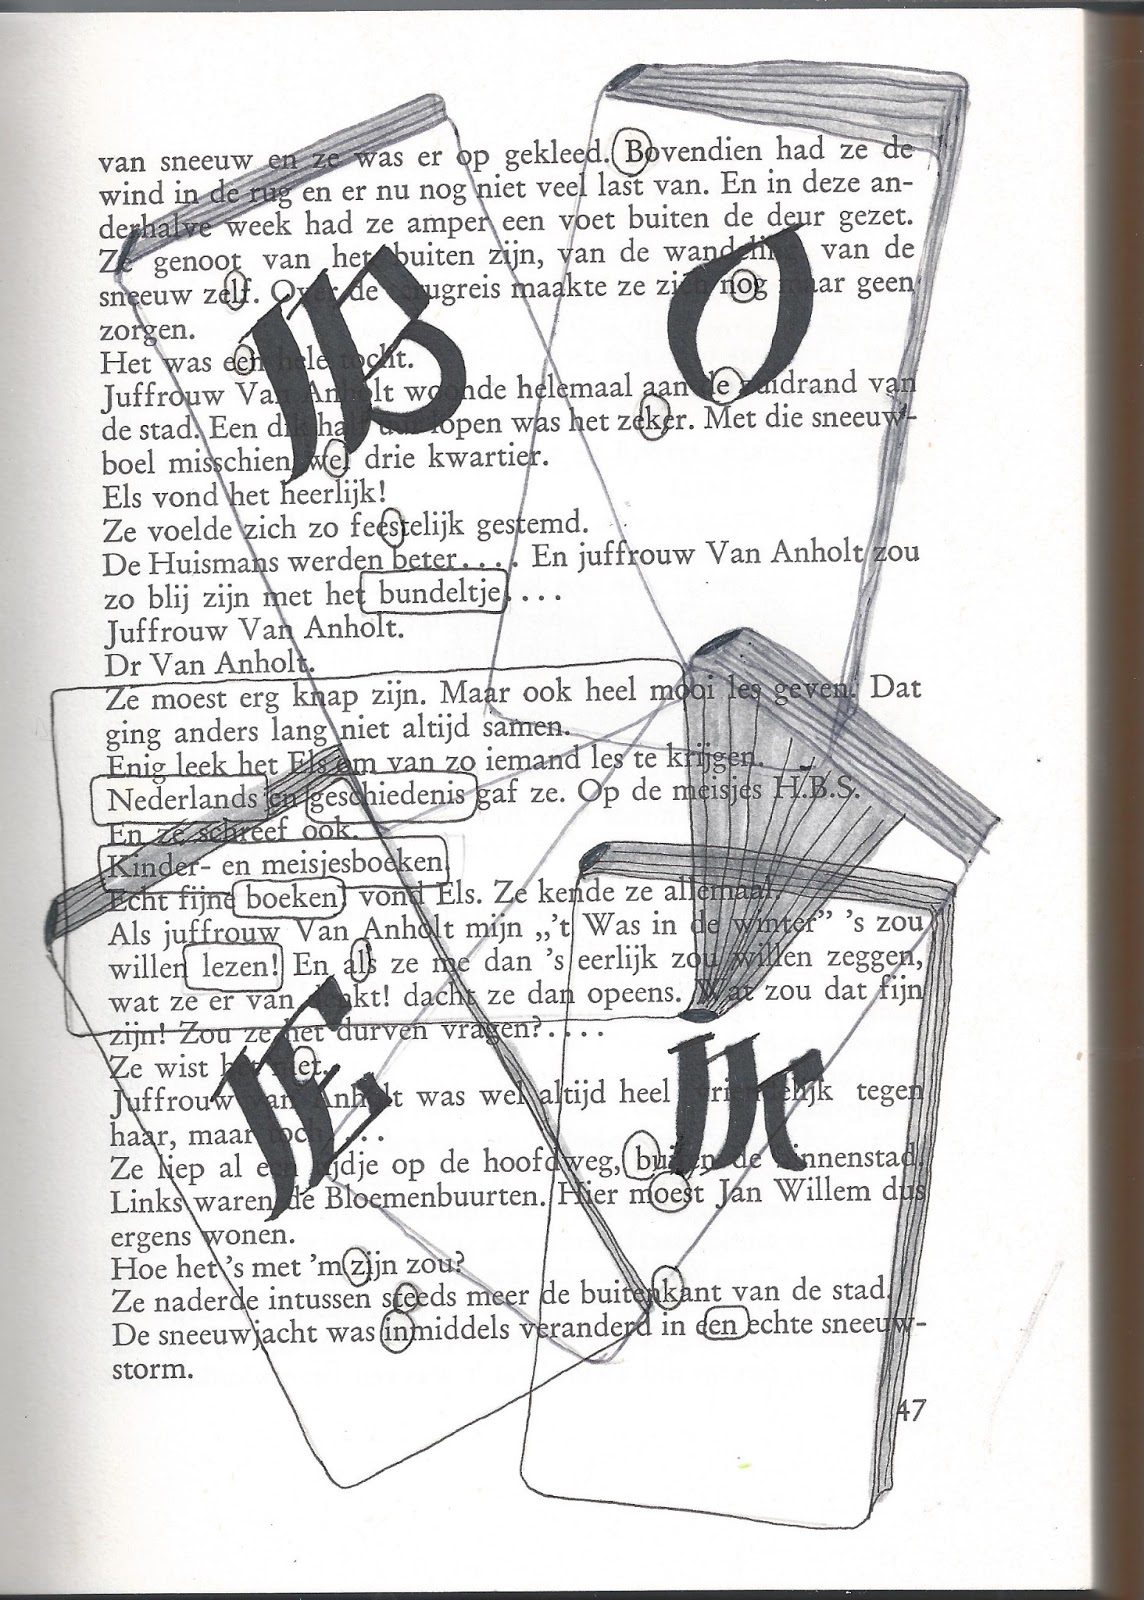 van sneeuw en ze was er op gekleed. Bovendien had ze de
wind in de rug en er nu nog niet veel last van. En in deze an-
derhalve week had ze amper een voet buiten de deur gezet.
Ze genoot van het buiten zijn, van de wandeling van de
sneeuw zelf. Over de terugreis maakte ze zich nog maar geen
zorgen.
Het was een hele tocht.
Juffrouw Van Anholt woonde helemaal aan de zuidrand van
de stad. Een dik half uur lopen was het zeker. Met die sneeuw-
boel misschien wel drie kwartier.
Els vond het heerlijk!
Ze voelde zich zo feestelijk gestemd.
De Huismans werden beter. . . . En juffrouw Van Anholt zou
zo blij zijn met het bundeltje. . . .
Juffrouw Van Anholt.
Dr Van Anholt.
Ze moest erg knap zijn. Maar ook heel mooi les geven. Dat
ging anders lang niet altijd samen.
Enig leek het Els om van zo iemand les te krijgen.
Nederlands en geschiedenis gaf ze. Op de meisjes H.B.S.
En ze schreef ook.
Kinder- en meisjesboeken.
Echt fijne boeken vond Els. Ze kende ze allemaal.
Als juffrouw Van Anholt mijn „'t Was in de winter” 's zou
willen lezen! En als ze me dan 's eerlijk zou willen zeggen,
wat ze er van denkt! dacht ze dan opeens. Wat zou dat fijn
zijn! Zou ze het durven vragen? . . . .
Ze wist het niet.
Juffrouw Van Anholt was wel altijd heel vriendelijk tegen
haar, maar toch . . . .
Ze liep al een tijdje op de hoofdweg, buiten de binnenstad.
Links waren de Bloemenbuurten. Hier moest Jan Willem dus
ergens wonen.
Hoe het 's met 'm zijn zou?
Ze naderde intussen steeds meer de buitenkant van de stad.
De sneeuwjacht was inmiddels veranderd in een echte sneeuw-
storm.
47
B O
E K